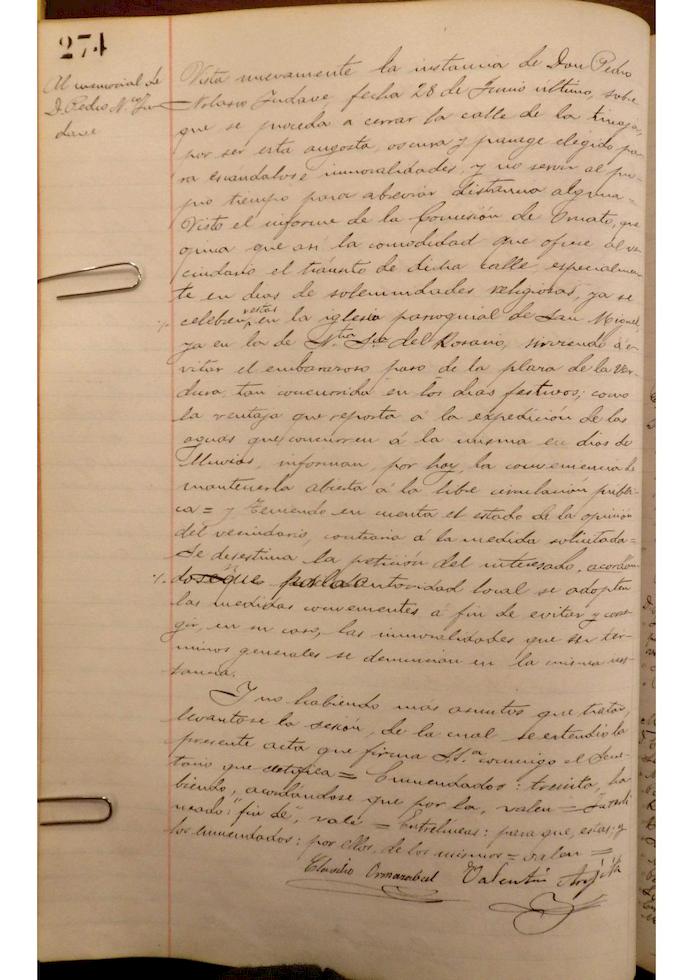 274
Al memorial de
D. Pedro N.co Ju-
dave
Vista nuevamente la instancia de Don Pedro
Nolasco Judave, fecha 28 de Junio último, sobre
que se proceda a cerrar la calle de la
por ser esta angosta, oscura y parage elegido pa-
ra escandalos e inmoralidades, y no servir al pro-
pio tiempo para abreviar distancia alguna =
Visto el informe de la Comisión de Ornato, que
opina que asi la comodidad que ofrece al ve-
cindario el tránsito de dicha calle, especialmen-
te en dias de solemnidades religiosas, ya se
celebren estas en la iglesia parroquial de San Miguel,
ya en la de Ntra Sra del Rosario, sirviendo á e-
vitar el embarazoso paso de la plaza de la Ver-
dura, tan concurrida en los dias festivos; como
la ventaja que reporta á la expedición de las
aguas que concurren á la misma en dias de
lluvias, informan, por hoy, la conveniencia de
mantenerla abierta á la libre circulación públi-
ca = y teniendo en cuenta el estado de la opinión
del vecindario, contraria á la medida solicitada =
Se desestima la petición del interesado, acordán-
dose que por la autoridad local se adopten
las medidas convenientes á fin de evitar y corre-
gir, en su caso, las inmoralidades que en tér-
minos generales se denuncian en la misma ins-
tancia.
Y no habiendo mas asuntos que tratar,
levantose la sesión, de la cual se extendió la
presente acta que firma S.S.a conmigo el Secre-
tario que certifica = Enmendados: treinta, ha-
biendo, acordándose que por la, valen =
neado: "fin de", vale = Entrelineas: para que, estas: y
los enmendados: por ellos, de los mismos = valen =
Claudio Ormazabal Valentin